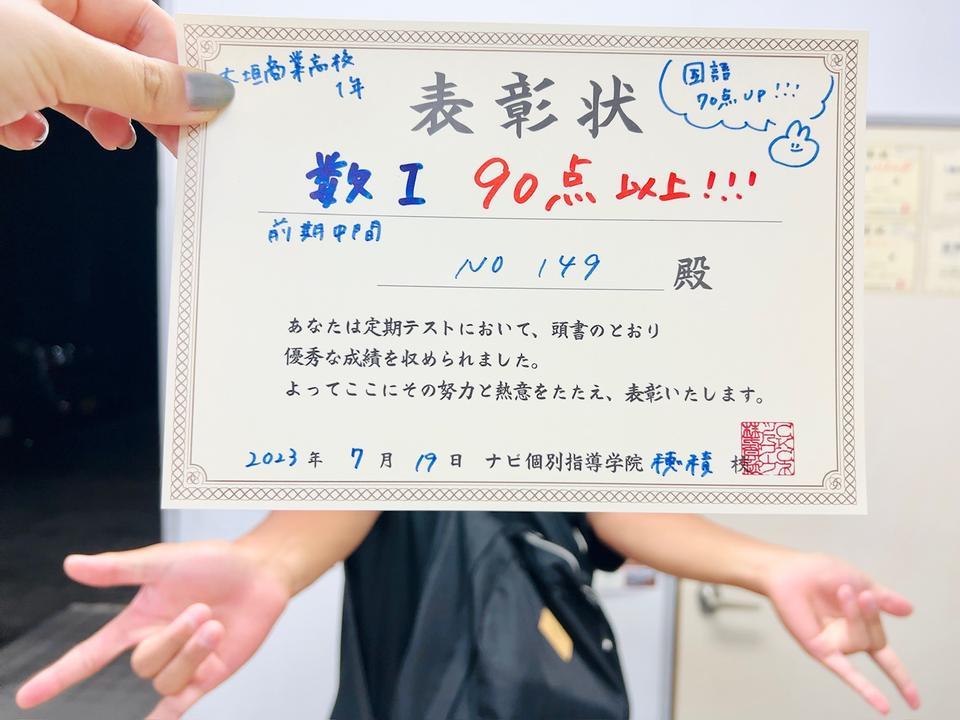 大垣商業高校
1年
表彰状
国語
70点UP!!!
数I 90点以上!!!
前期中間
NO 149 殿
あなたは定期テストにおいて、頭書のとおり
優秀な成績を収められました。
よってここにその努力と熱意をたたえ、表彰いたします。
2023年 7月 19日 ナビ個別指導学院 穂積 校